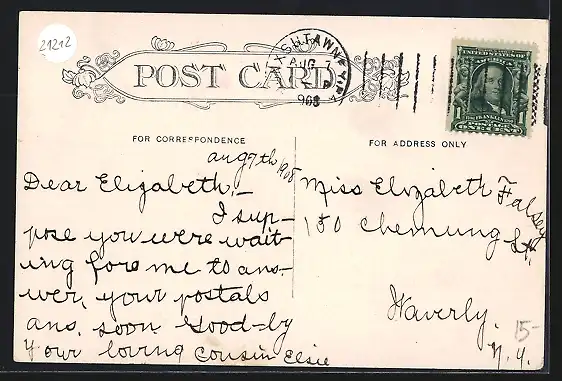 21212
POST CARD
AUG 7
P
1908
UNITED STATES OF AMERICA
1 1
ONE CENT
FOR CORRESPONDENCE
FOR ADDRESS ONLY
aug 7th 1908
Dear Elizabeth,—
I sup-
pose you were wait-
ing fore me to ans-
wer, your postals
ans. soon Good-by
Your loving cousin Elsie
Miss Elizabeth Falsey
150 Chemung St.
Waverly.
N. Y.
15-